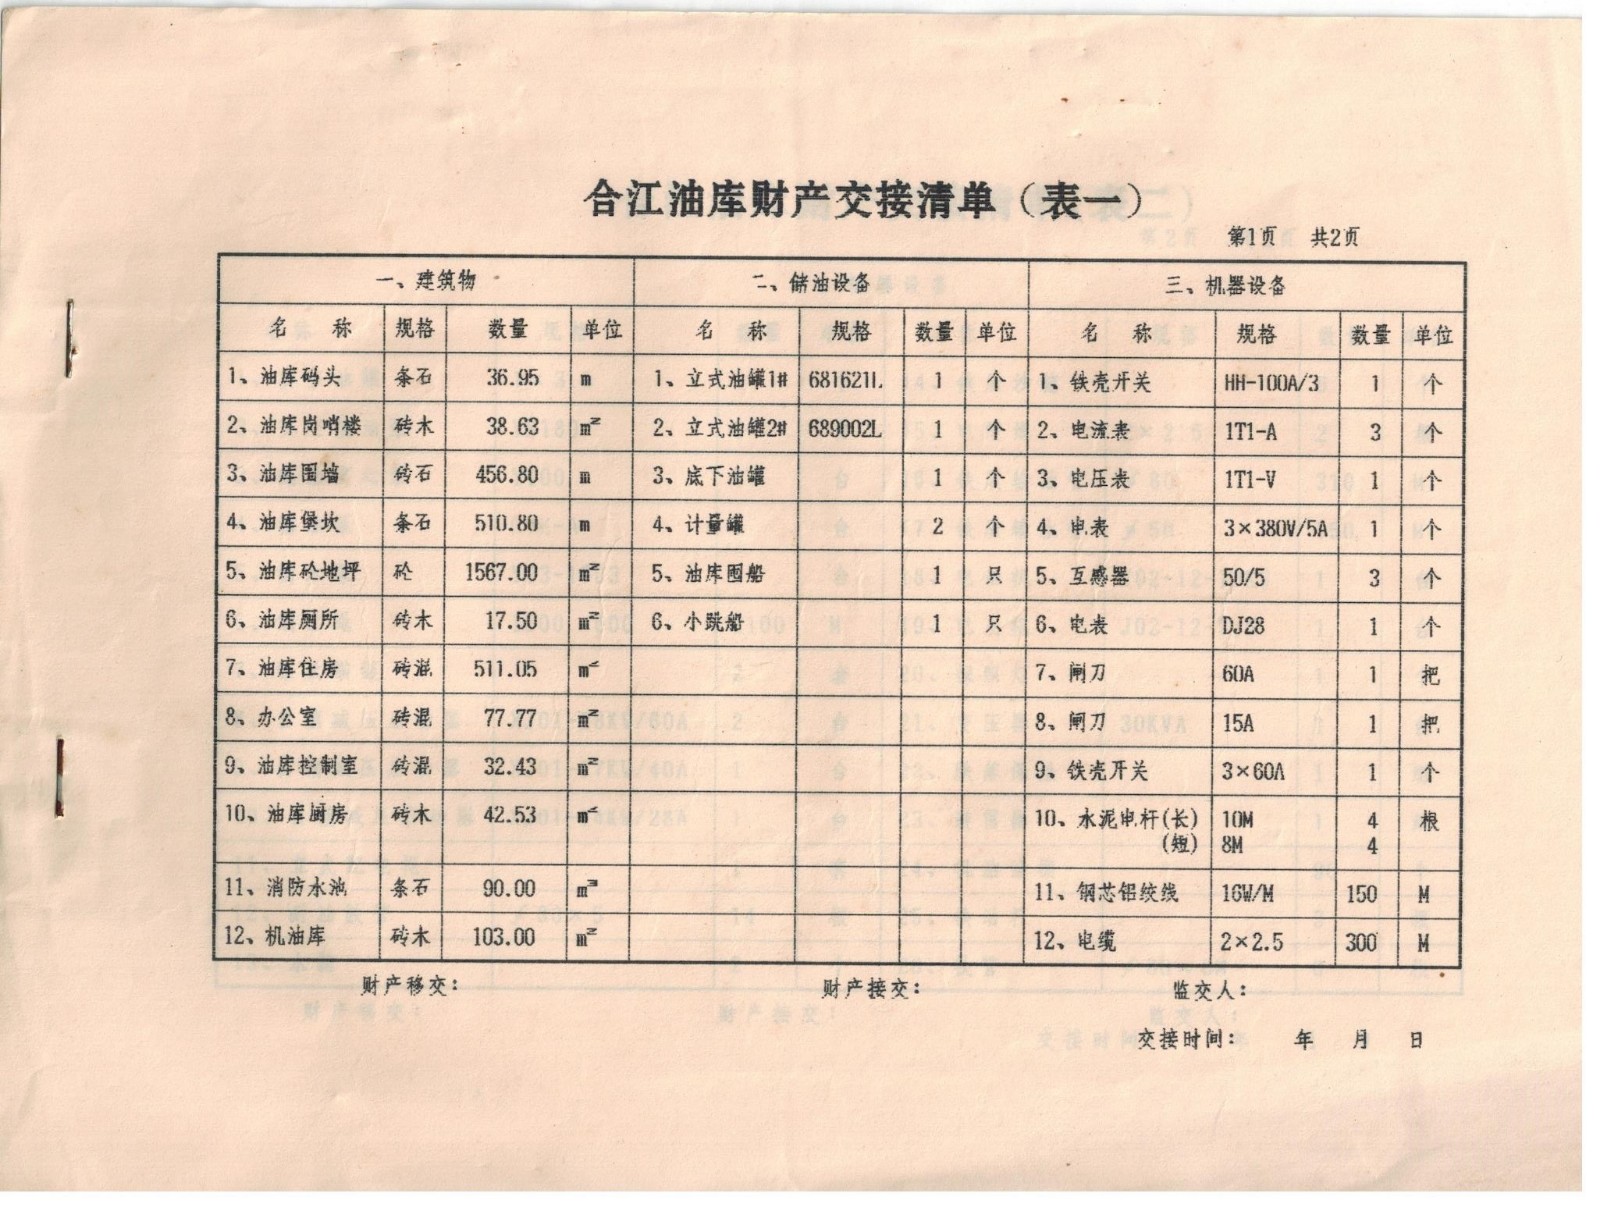 合江油库财产交接清单（表一）
第1页 共2页
一、建筑物 二、储油设备 三、机器设备
名 称 规格 数量 单位 名 称 规格 数量 单位 名 称 规格 数量 单位
1、油库码头 条石 36.95 m 1、立式油罐1# 681621L 1 个 1、铁壳开关 HH-100A/3 1 个
2、油库岗哨楼 砖木 38.63 m² 2、立式油罐2# 689002L 1 个 2、电流表 1T1-A 3 个
3、油库围墙 砖石 456.80 m 3、底下油罐 1 个 3、电压表 1T1-V 1 个
4、油库堡坎 条石 510.80 m 4、计量罐 2 个 4、电表 3×380V/5A 1 个
5、油库砼地坪 砼 1567.00 m² 5、油库囤船 1 只 5、互感器 50/5 3 个
6、油库厕所 砖木 17.50 m² 6、小跳船 1 只 6、电表 DJ28 1 个
7、油库住房 砖混 511.05 m² 7、闸刀 60A 1 把
8、办公室 砖混 77.77 m² 8、闸刀 15A 1 把
9、油库控制室 砖混 32.43 m² 9、铁壳开关 3×60A 1 个
10、油库厨房 砖木 42.53 m² 10、水泥电杆(长) 10M 4 根
(短) 8M 4
11、消防水池 条石 90.00 m³ 11、钢芯铝绞线 16W/M 150 M
12、机油库 砖木 103.00 m² 12、电缆 2×2.5 300 M
财产移交： 财产接交： 监交人：
交接时间： 年 月 日